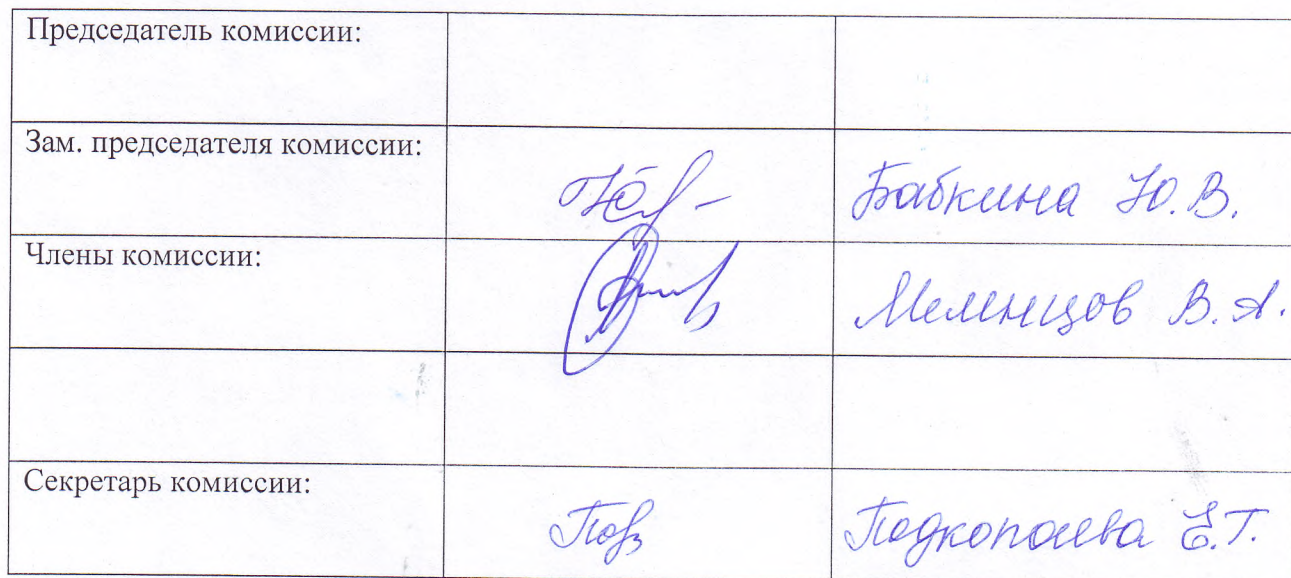 Председатель комиссии:
Зам. председателя комиссии:
Бабкина Ю.В.
Члены комиссии:
В.А.
Секретарь комиссии:
Подкопаева Е.Г.